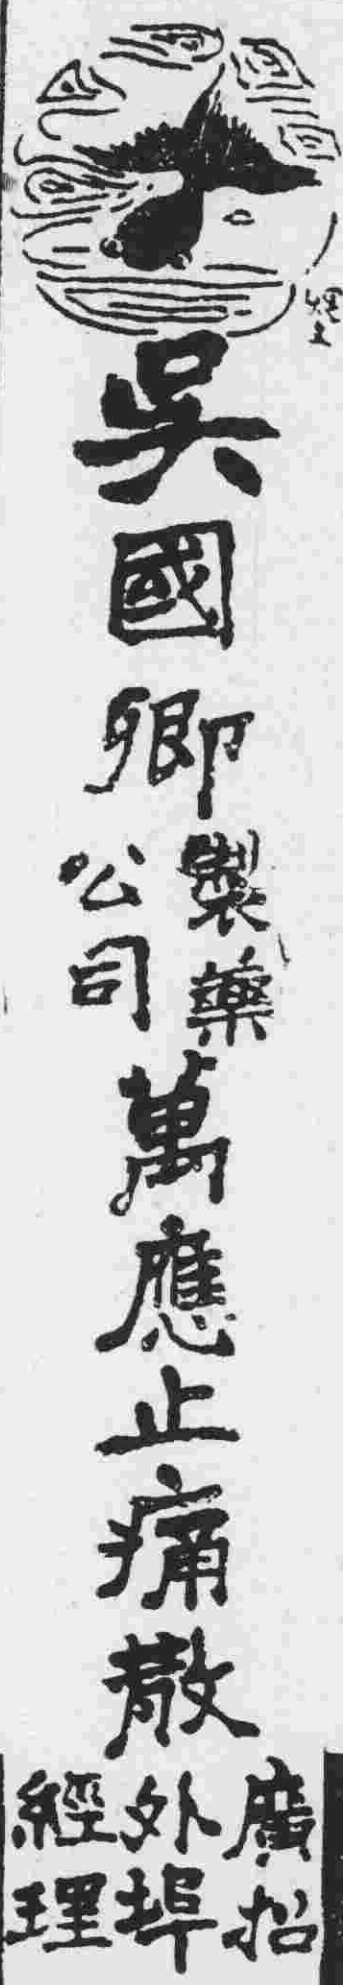 吳國卿
製藥
公司
萬應止痛散
廣招
外埠
經理